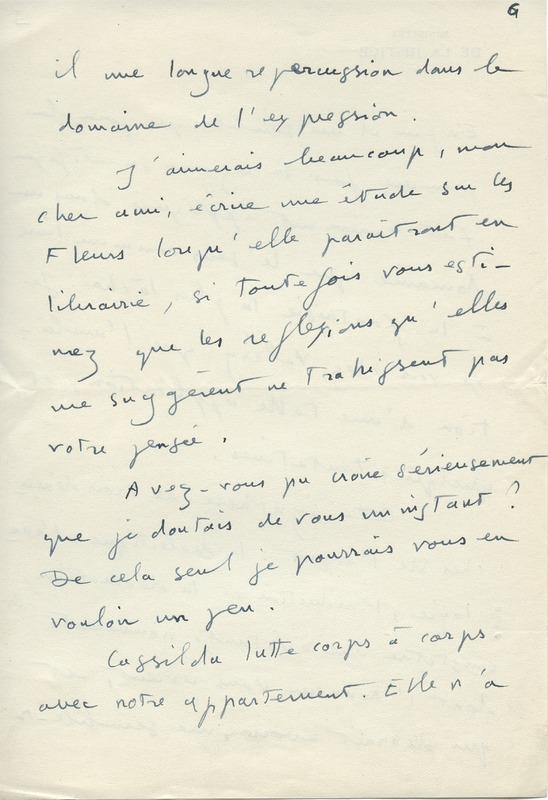 6
il une longue repercussion dans le
domaine de l'expression.
J'aimerais beaucoup, mon
cher ami, écrire une étude sur les
Fleurs lorsqu'elle paraîtront en
librairie, si toutefois vous esti-
mez que les reflexions qu'elles
me suggèrent ne trahissent pas
votre pensée.
Avez-vous pu croire sérieusement
que je doutais de vous un instant ?
De cela seul je pourrais vous en
vouloir un peu.
Cassilda lutte corps à corps
avec notre appartement. Elle n'a